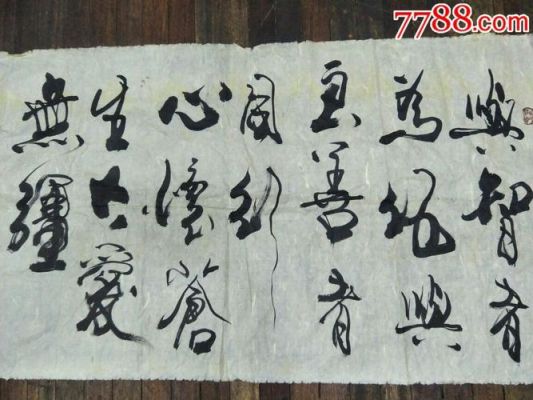 7788.com
與智者
為伍與
良善者
同行
心懷蒼
生大愛
無疆